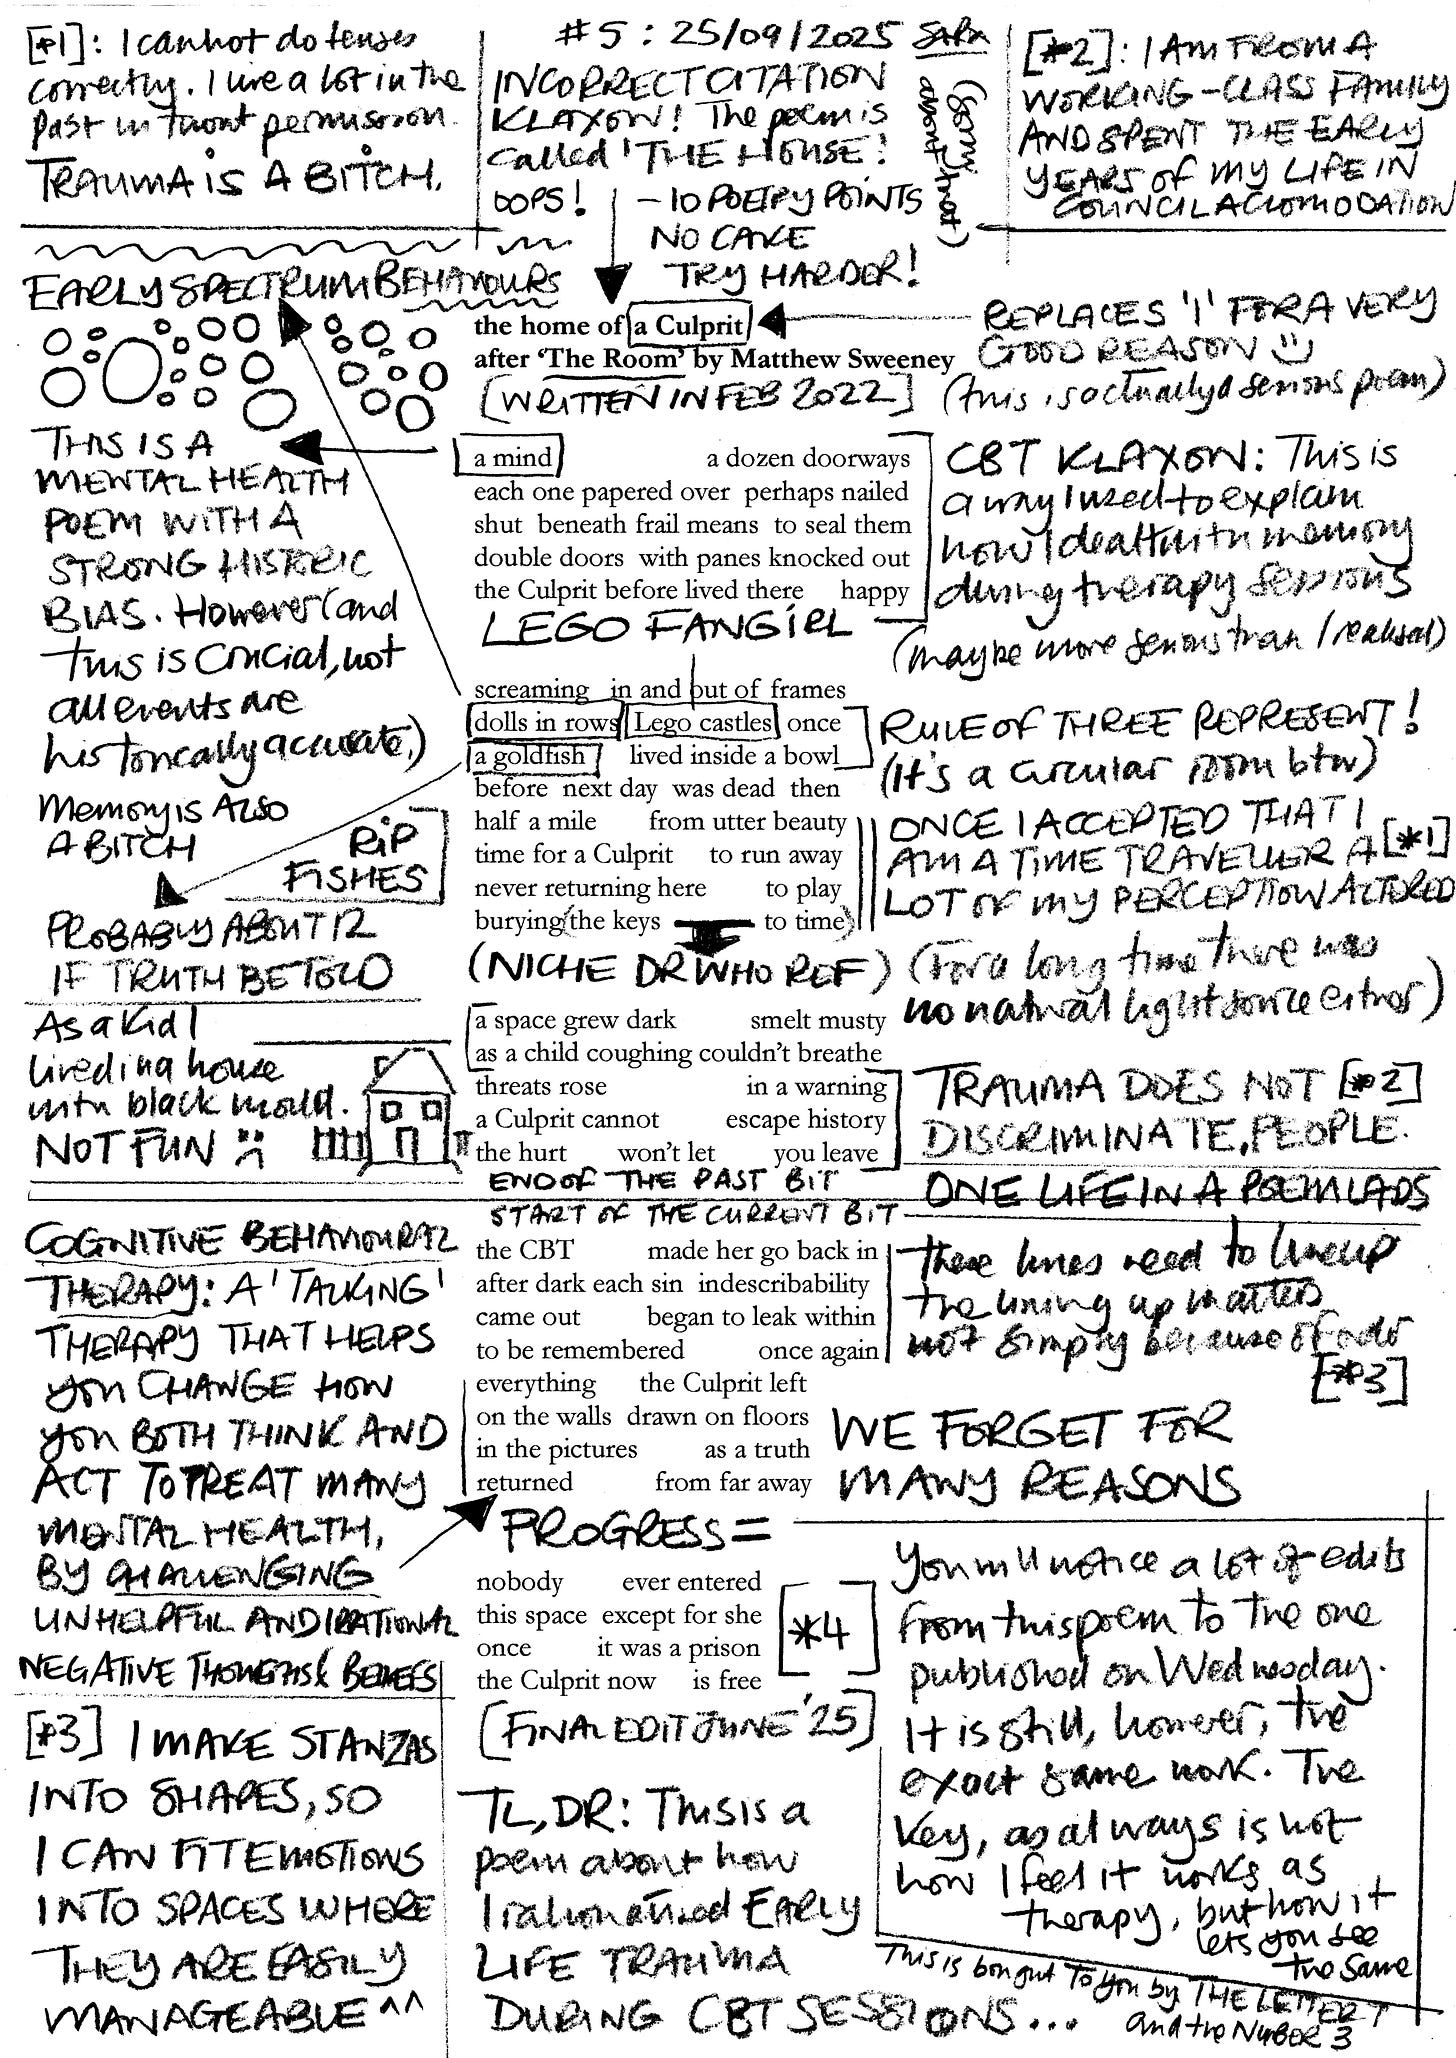 [*1]: I cannot do tenses
correctly. I live a lot in the
past without permission.
TRAUMA iS A BITCH.
#5 : 25/09/2025
INCORRECT CITATION
KLAXON! The poem is
called 'THE HOUSE!
OOPS!
-10 POETRY POINTS
NO CAKE
TRY HARDER!
(sorry
about that)
[*2]: I AM FROM A
WORKING-CLASS FAMILY
AND SPENT THE EARLY
YEARS OF MY LIFE IN
COUNCIL ACCOMODATION
EARLY SPECTRUM BEHAVIOURS
the home of a Culprit
after 'The Room' by Matthew Sweeney
[WRITTEN IN FEB 2022]
REPLACES 'I' FOR A VERY
GOOD REASON
(this is actually a serious poem)
THIS IS A
MENTAL HEALTH
POEM WITH A
STRONG HISTORIC
BIAS. However (and
this is crucial, not
all events are
historically accurate.)
Memory is ALSO
A BITCH
RiP
FISHES
PROBABLY ABOUT 12
IF TRUTH BE TOLD
a mind a dozen doorways
each one papered over perhaps nailed
shut beneath frail means to seal them
double doors with panes knocked out
the Culprit before lived there happy
LEGO FANGiRL
CBT KLAXON: This is
a way I used to explain
how I dealt with memory
during therapy sessions
(maybe more serious than I realised)
screaming in and out of frames
dolls in rows Lego castles once
a goldfish lived inside a bowl
before next day was dead then
half a mile from utter beauty
time for a Culprit to run away
never returning here to play
burying (the keys to time)
(NICHE DR WHO REF)
RULE OF THREE REPRESENT!
(It's a circular room btw)
ONCE I ACCEPTED THAT I
AM A TIME TRAVELLER A [*1]
LOT OF MY PERCEPTION ALTERED
(For a long time there was
no natural light source either)
As a kid I
lived in a house
with black mould.
NOT FUN
a space grew dark smelt musty
as a child coughing couldn't breathe
threats rose in a warning
a Culprit cannot escape history
the hurt won't let you leave
END OF THE PAST BiT
TRAUMA DOES NOT [*2]
DISCRIMINATE, PEOPLE.
ONE LIFE IN A POEM LADS
START OF THE CURRENT BIT
COGNITIVE BEHAVIOURAL
THERAPY: A 'TALKING'
THERAPY THAT HELPS
you CHANGE HOW
you BOTH THINK AND
ACT TO TREAT MANY
MENTAL HEALTH,
BY CHALLENGING
UNHELPFUL AND IRRATIONAL
NEGATIVE THOUGHTS & BELIEFS
the CBT made her go back in
after dark each sin indescribability
came out began to leak within
to be remembered once again
everything the Culprit left
on the walls drawn on floors
in the pictures as a truth
returned from far away
These lines need to line up
the lining up matters
not simply because of
[*3]
WE FORGET FOR
MANY REASONS
PROGRESS =
nobody ever entered
this space except for she
once it was a prison
the Culprit now is free
[*4]
[FINAL EDIT JUNE '25]
You will notice a lot of edits
from this poem to the one
published on Wednesday.
It is still, however, the
exact same work. The
key, as always is not
how I feel it works as
therapy, but how it
lets you see
the same
[*3] I MAKE STANZAS
INTO SHAPES, SO
I CAN FIT EMOTIONS
INTO SPACES WHERE
THEY ARE EASILY
MANAGEABLE ^^
TL,DR: This is a
poem about how
I rationalised EARLY
LIFE TRAUMA
DURING CBT SESSIONS...
This is bought To you by THE LETTER T
and the NUMBER 3